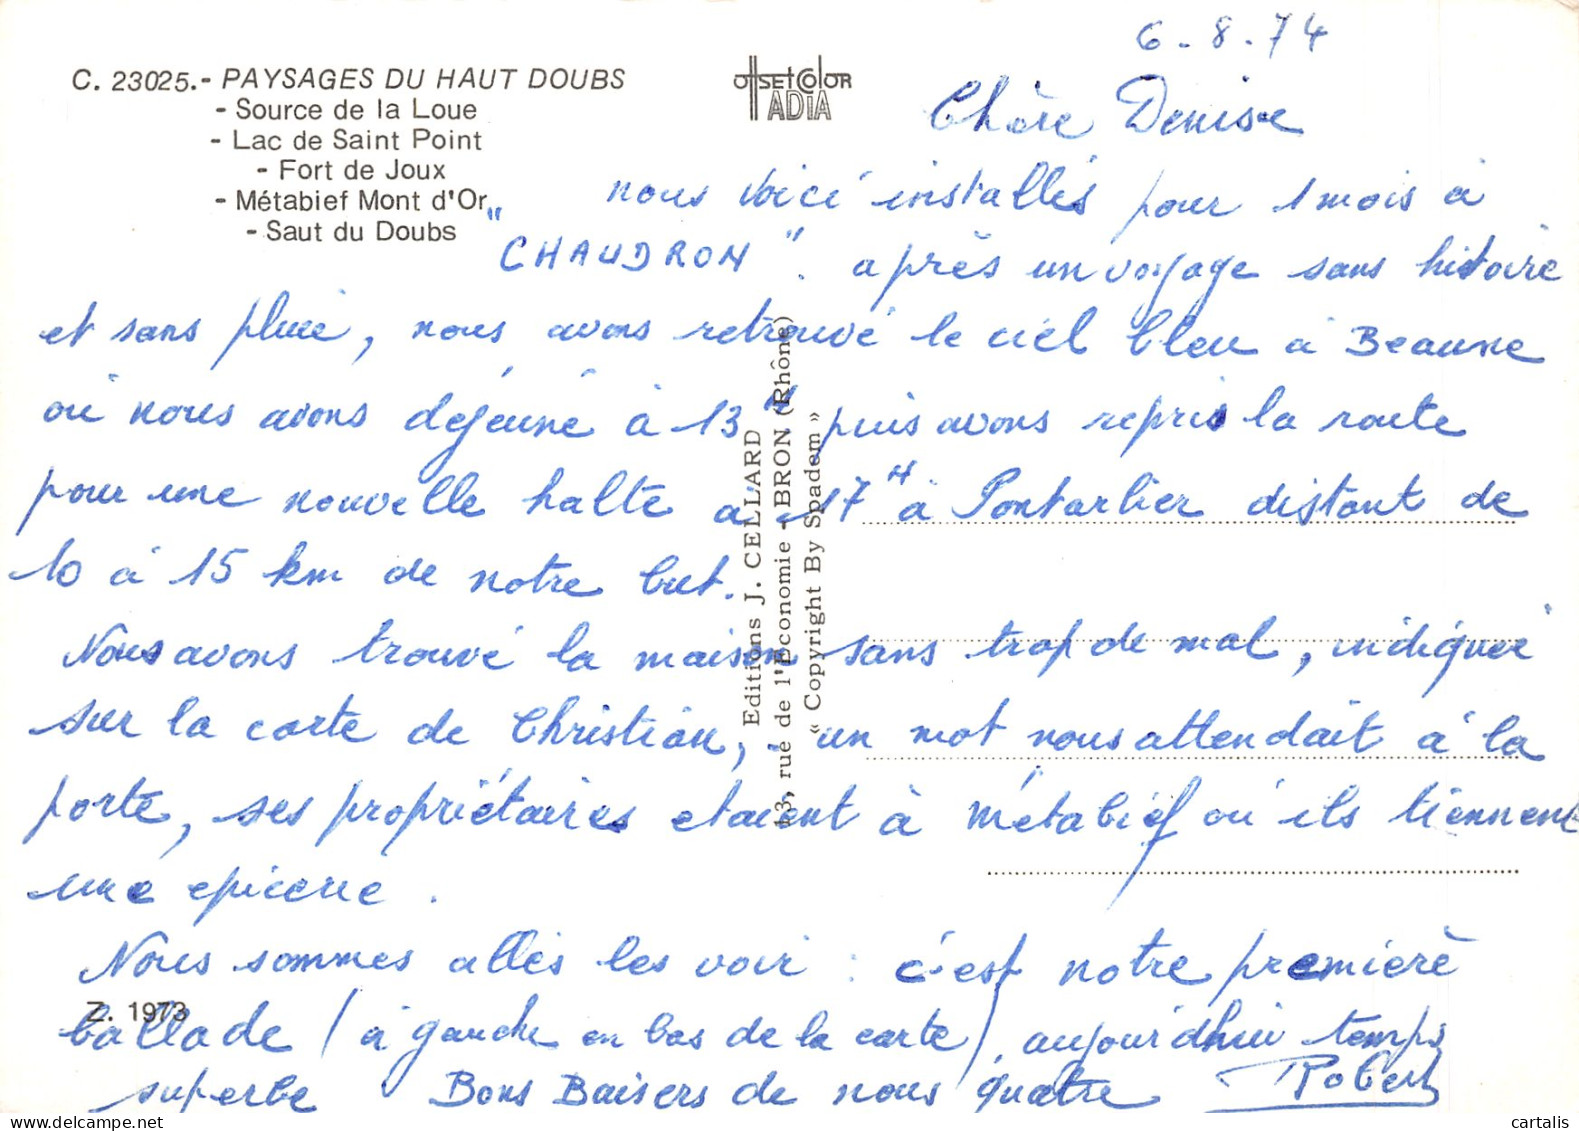 6.8.74
C. 23025.- PAYSAGES DU HAUT DOUBS
- Source de la Loue
- Lac de Saint Point
- Fort de Joux
- Métabief Mont d'Or
- Saut du Doubs
OFFSET COLOR
ADIA
Chère Denise
nous voici installés pour 1 mois à
"CHAUDRON". après un voyage sans histoire
et sans pluie, nous avons retrouvé le ciel bleu à Beaune
où nous avons déjeuné à 13H puis avons repris la route
pour une nouvelle halte à 17H à Pontarlier distant de
10 à 15 km de notre but.
Nous avons trouvé la maison sans trop de mal, indiquée
sur la carte de Christian, un mot nous attendait à la
porte, ses propriétaires etaient à Métabief où ils tiennent
une epicerie.
Nous sommes allés les voir : c'est notre première
ballade (à gauche en bas de la carte). aujourd'hui temps
superbe Bons Baisers de nous quatre Robert
Editions J. CELLARD
13, rue de l'Economie - BRON (Rhône)
« Copyright By Spadem »
Z. 1973
cartalis.com